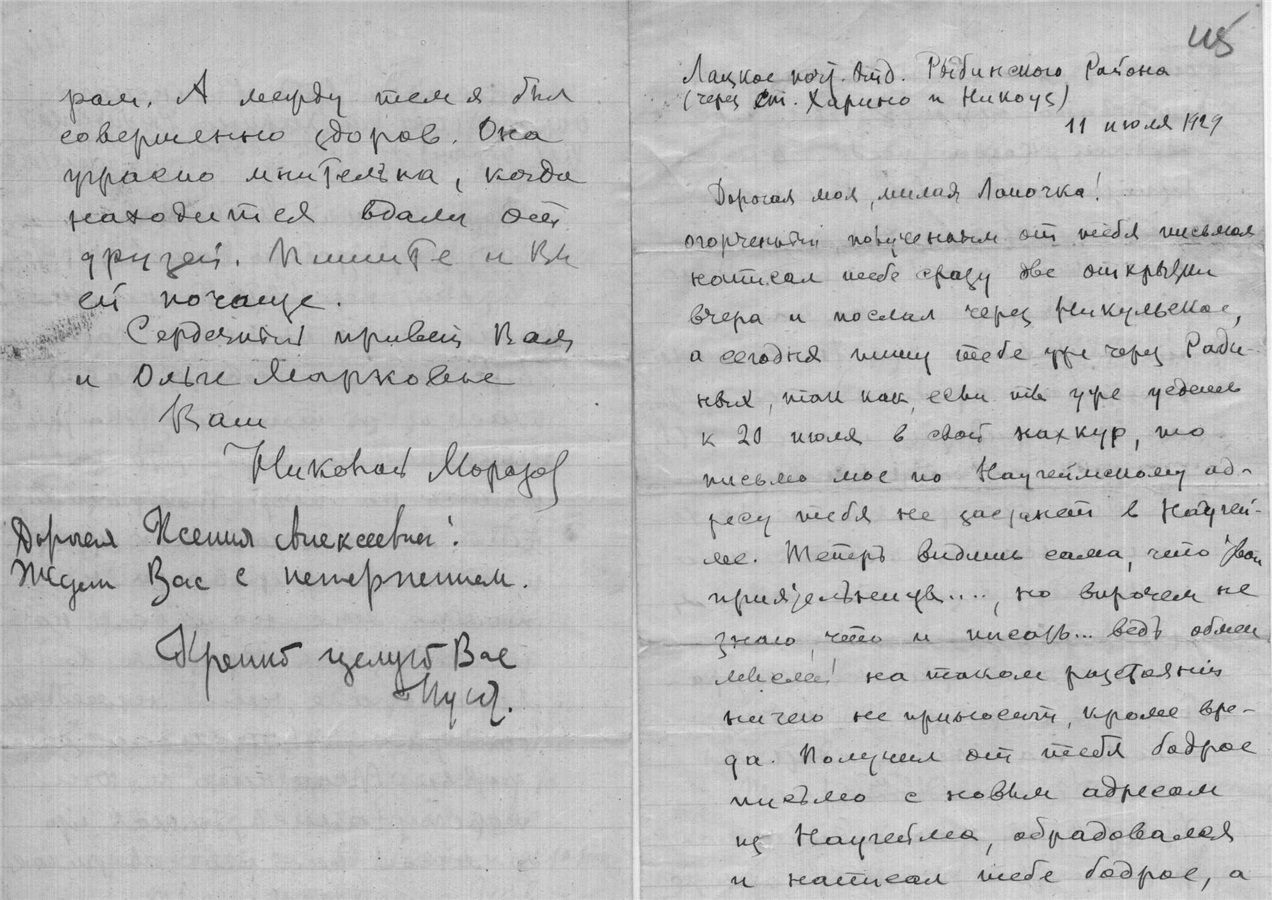 рам. А между тем я был
совершенно здоров. Она
ужасно мнительна, когда
находится вдали от
друзей. Пишите и Вы
ей почаще.
Сердечный привет Вам
и Ольге Марковне
Ваш
Николай Морозов
Дорогая Ксения Алексеевна!
Ждем Вас с нетерпением.
Крепко целую Вас
115
Лацкое поч. Отд. Рыбинского Района
(через ст. Харино и Никоуз)
11 июля 1929
Дорогая моя, милая Лапочка!
огорченный полученным от тебя письмом
написал тебе сразу две открытки
вчера и послал через Никульское,
а сегодня пишу тебе уже через Роди-
ных, так как, если ты уже уедешь
к 20 июля в свой нахкур, то
письмо мое по Наугеймскому ад-
ресу тебя не застанет в Наугей-
ме. Теперь видишь сама, что твои
но впрочем не
знаю, что и писать... ведь обмен
мыслей на таком разстоянии
ничего не приносит, кроме вре-
да. Получил от тебя бодрое
письмо с новым адресом
из Наугейма, обрадовался
и написал тебе бодрое, а